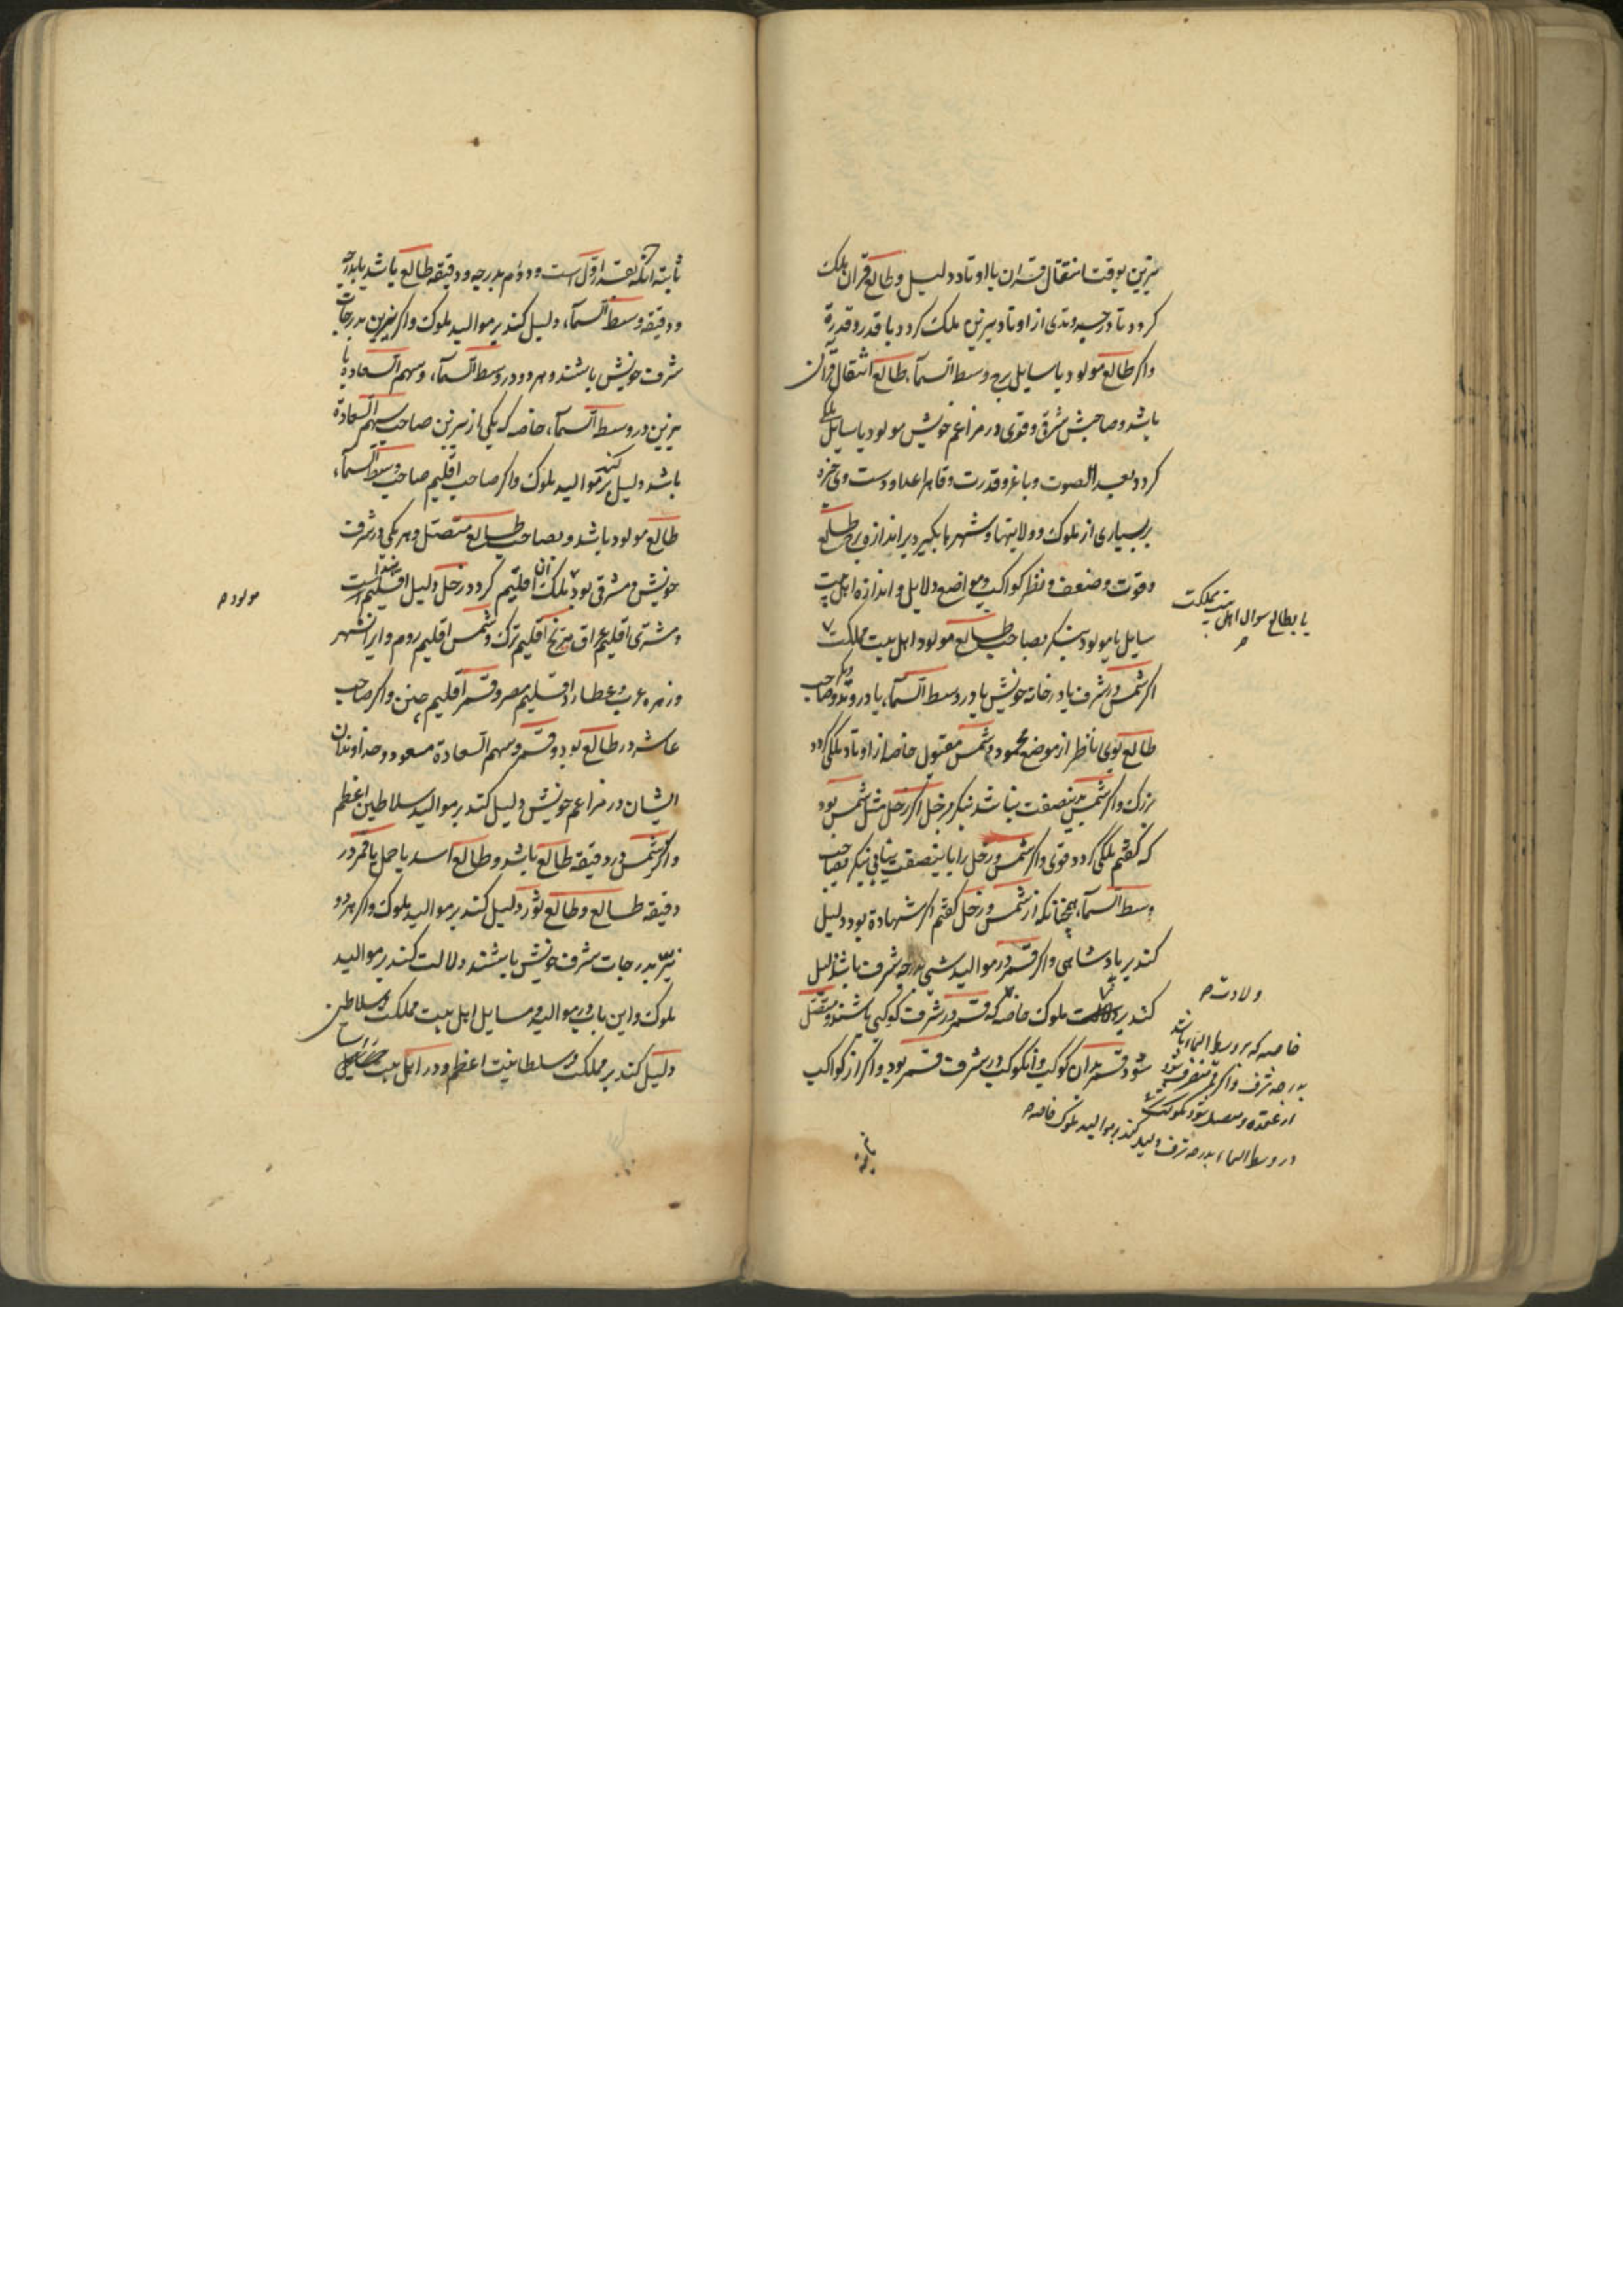 نیرین بوقت انتقال قران یا اوتاد دلیل و طالع قران ملک
کردد تا درجه وتدی از اوتاد نیرین ملک کردد با قدر و قدرة
واکر طالع مولود یا سایل برج وسط السمآء طالع انتقال قرآن
باشد و صاحبش مشرقی و قوی در مزاعم خویش مولود یا سایل ملکی
کردد بعید الصوت و با عز و قدرت و قاهر اعدا و دوست وی
بر بسیاری از ملوک و ولایتها و شهرها بکیرد بر اندازه برج طالع
و قوت و ضعف و نظر کواکب و مواضع دلایل و اندازه اهل بیت
سایل یا مولود بنکر بصاحب طالع مولود اهل بیت مملکت
یا بطالع سوال اهل بیت مملکت
اکر شمس در شرف یا در خانه خویش یا در وسط السمآء یا در وتد و صاحب
طالع بوی ناظر از موضع محمود و شمس مقبول خاصه از اوتاد ملکی کردد
بزرک و اکر شمس بدین صفت نباشد بنکر بزحل اکر زحل مثل شمس بود
که کفتم ملکی کردد قوی و اکر شمس و زحل را باین صفت نیابی بنکر بصاحب
وسط السمآء همچنانکه از شمس و زحل کفتم اکر شهادة بود دلیل
کند بر پادشاهی و اکر قمر در موالید شبی بدرجه شرف باشد دلیل
کند بر ملوک خاصه که قمر در شرف کوکبی باشد و متصل
ولادت
خاصه که بر وسط السماء باشد
بدرجه شرف و اکر قمر منصرف شود
از عقده و متصل شود بکوکب
در وسط السماء بدرجه شرف دلیل کند بر موالید ملوک خاصه
شود قمر بدان کوکب و آنکوکب در شرف قمر بود و اکر از کواکب
ثابته
ثابته آنکه بقدر اول است و دوم بدرجه و دقیقه طالع باشد یا بدرجه
و دقیقه وسط السمآء دلیل کند بر موالید ملوک و اکر نیرین بدرجات
شرف خویش باشند و هر دو در وسط السمآء و سهم السعاده با
نیرین در وسط السمآء خاصه که یکی از نیرین صاحب سهم السعادة
باشد دلیل کند بر موالید ملوک و اکر صاحب اقلیم صاحب وسط السمآء
طالع مولود باشد و بصاحب طالع متصل و هر یکی در شرف
خویش و مشرقی بود ملک آن اقلیم کردد زحل دلیل اقلیم است
مولود
و مشتری اقلیم عراق مریخ اقلیم ترک و شمس اقلیم روم و ایرانشهر
و زهره عرب و عطارد اقلیم مصر و قمر اقلیم چین و اکر صاحب
عاشر در طالع بود و قمر و سهم السعادة مسعود و خداوندان
ایشان در مزاعم خویش دلیل کند بر موالید سلاطین اعظم
و اکر شمس در دقیقه طالع باشد و طالع اسد یا حمل یا قمر در
دقیقه طالع و طالع ثور دلیل کند بر موالید ملوک و اکر هر دو
نیر بدرجات شرف خویش باشند دلالت کند بر موالید
ملوک و این باب در موالید و مسایل اهل بیت مملکت و سلاطین
دلیل کند بر مملکت و سلطانیت اعظم و در اهل بیت